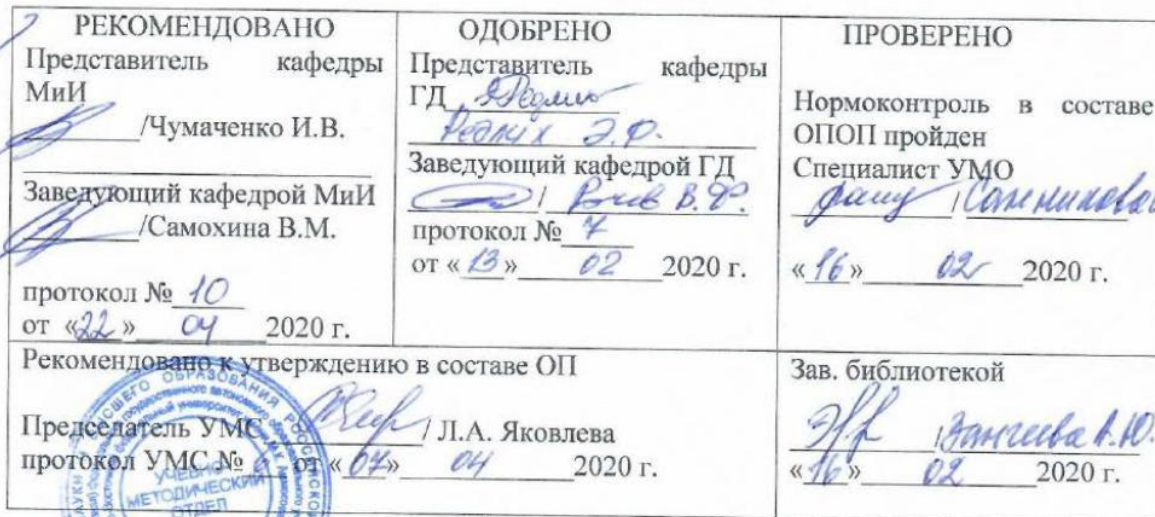 РЕКОМЕНДОВАНО
Представитель кафедры
МиИ
/Чумаченко И.В.
Заведующий кафедрой МиИ
/Самохина В.М.
протокол № 10
от «22» 04 2020 г.
ОДОБРЕНО
Представитель кафедры
ГД
Редлих Э.Ф.
Заведующий кафедрой ГД
/ В.Ф.
протокол № 7
от «13» 02 2020 г.
ПРОВЕРЕНО
Нормоконтроль в составе
ОПОП пройден
Специалист УМО
/
«16» 02 2020 г.
Рекомендовано к утверждению в составе ОП
Председатель УМС / Л.А. Яковлева
протокол УМС № от «07» 04 2020 г.
Зав. библиотекой
/ А.Ю.
«16» 02 2020 г.
УЧЕБНО
МЕТОДИЧЕСКИЙ
ОТДЕЛ